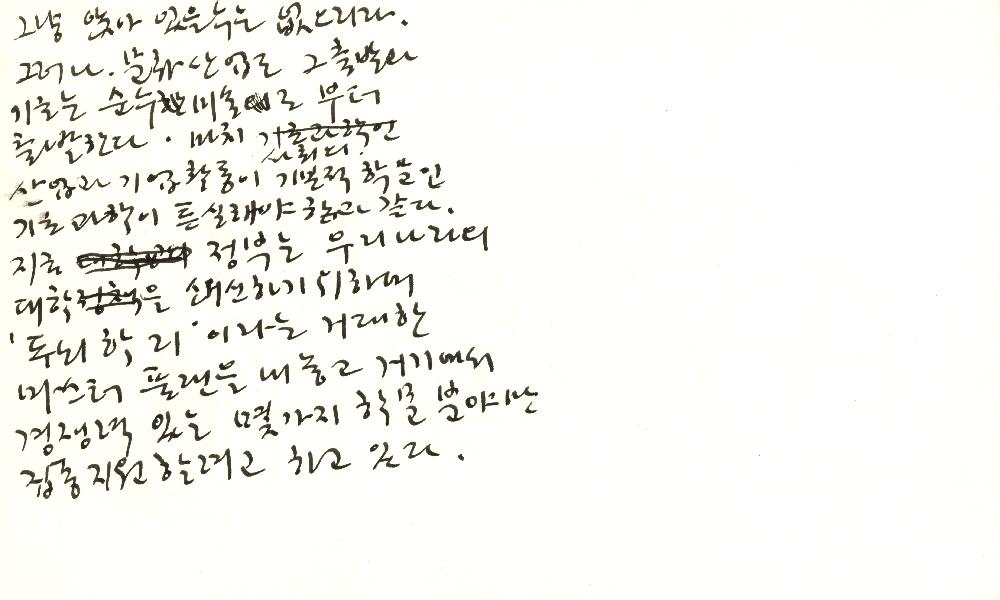 그냥 앉아 있을수는 없느리라.
그러나. 문화산업도 그 출발과
기초는 순수미술로 부터
출발한다. 마치
사회의
산업과 기업활동이 기본적 학문인
기초과학이 튼실해야 함과 같다.
지금 정부는 우리나라의
대학을 쇄신하기 위하여
'두뇌학리'이라는 거대한
마스터 플랜을 내놓고 거기에서
경쟁력 있는 몇가지 학문 분야만
집중지원 할려고 하고 있다.